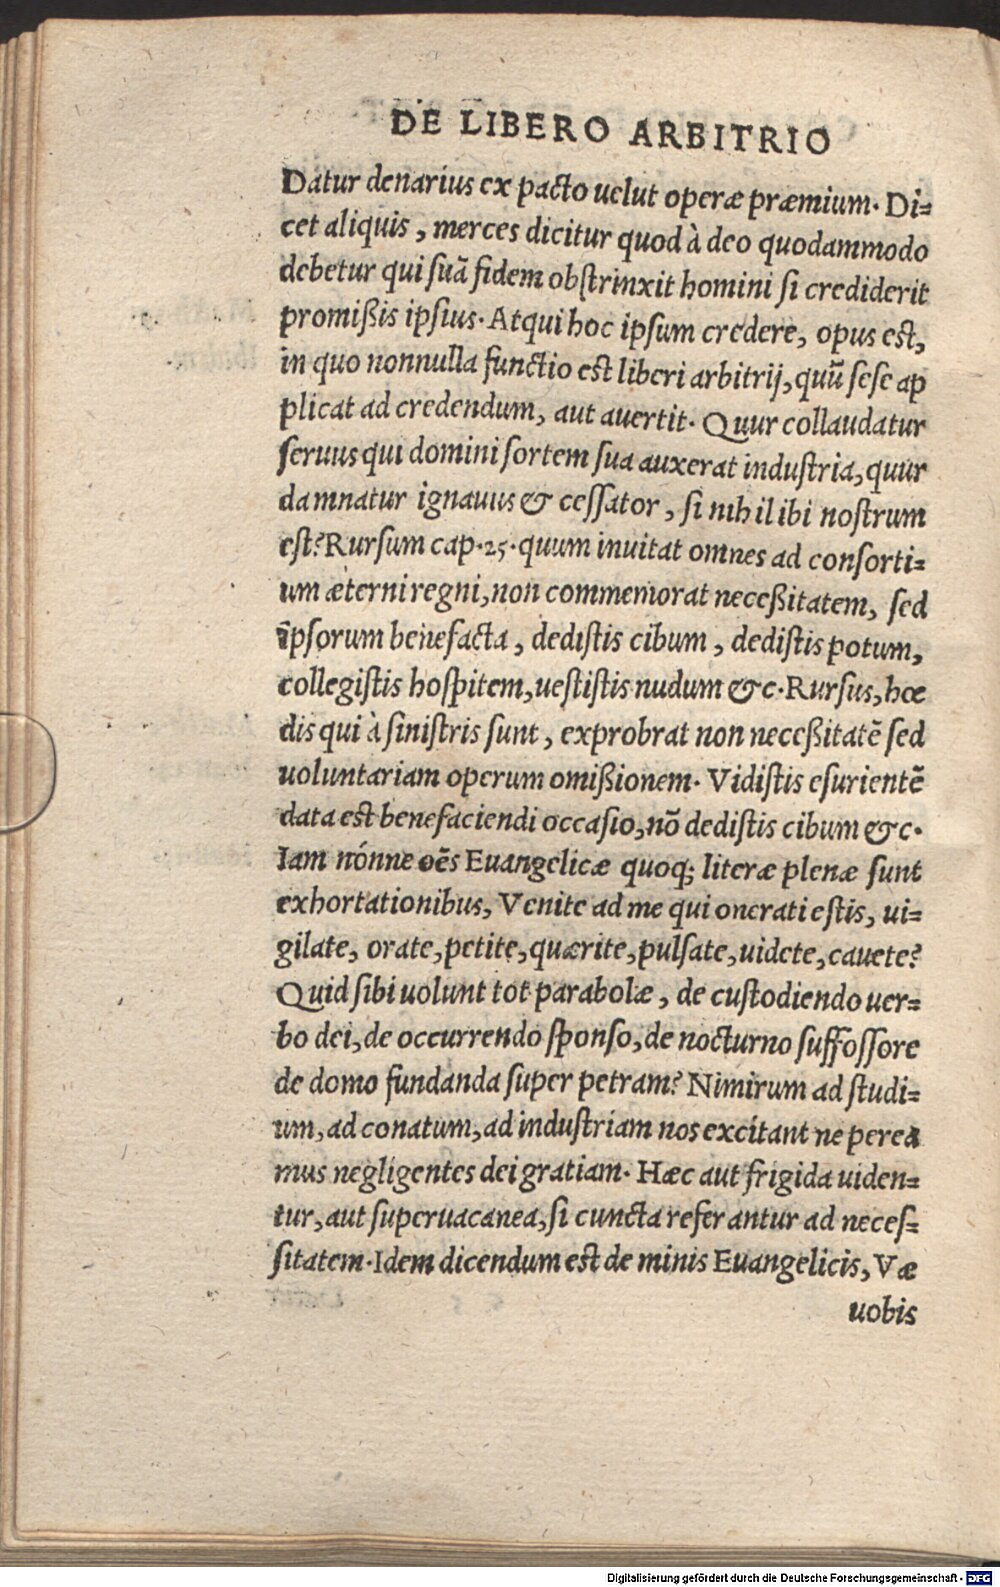 DE LIBERO ARBITRIO
Datur denarius ex pacto uelut operæ præmium. Di=
cet aliquis, merces dicitur quod à deo quodammodo
debetur qui suã fidem obstrinxit homini si crediderit
promißis ipsius. Atqui hoc ipsum credere, opus est,
in quo nonnulla functio est liberi arbitrij, quũ sese ap
plicat ad credendum, aut auertit. Quur collaudatur
seruus qui domini sortem sua auxerat industria, quur
damnatur ignauus & cessator, si nihil ibi nostrum
est? Rursum cap. 25. quum inuitat omnes ad consorti=
um æterni regni, non commemorat neceßitatem, sed
ipsorum benefacta, dedistis cibum, dedistis potum,
collegistis hospitem, uestistis nudum &c. Rursus, hœ
dis qui à sinistris sunt, exprobrat non neceßitatẽ sed
uoluntariam operum omißionem. Vidistis esurientẽ
data est benefaciendi occasio, nõ dedistis cibum &c.
Iam nónne oẽs Euangelicæ quoq; literæ plenæ sunt
exhortationibus, Venite ad me qui onerati estis, ui=
gilate, orate, petite, quærite, pulsate, uidete, cauete?
Quid sibi uolunt tot parabolæ, de custodiendo uer=
bo dei, de occurrendo sponso, de nocturno suffossore
de domo fundanda super petram? Nimirum ad studi=
um, ad conatum, ad industriam nos excitant ne perea
mus negligentes dei gratiam. Hæc aut frigida uiden=
tur, aut superuacanea, si cuncta referantur ad neces=
sitatem. Idem dicendum est de minis Euangelicis, Væ
uobis
Digitalisierung gefördert durch die Deutsche Forschungsgemeinschaft - DFG